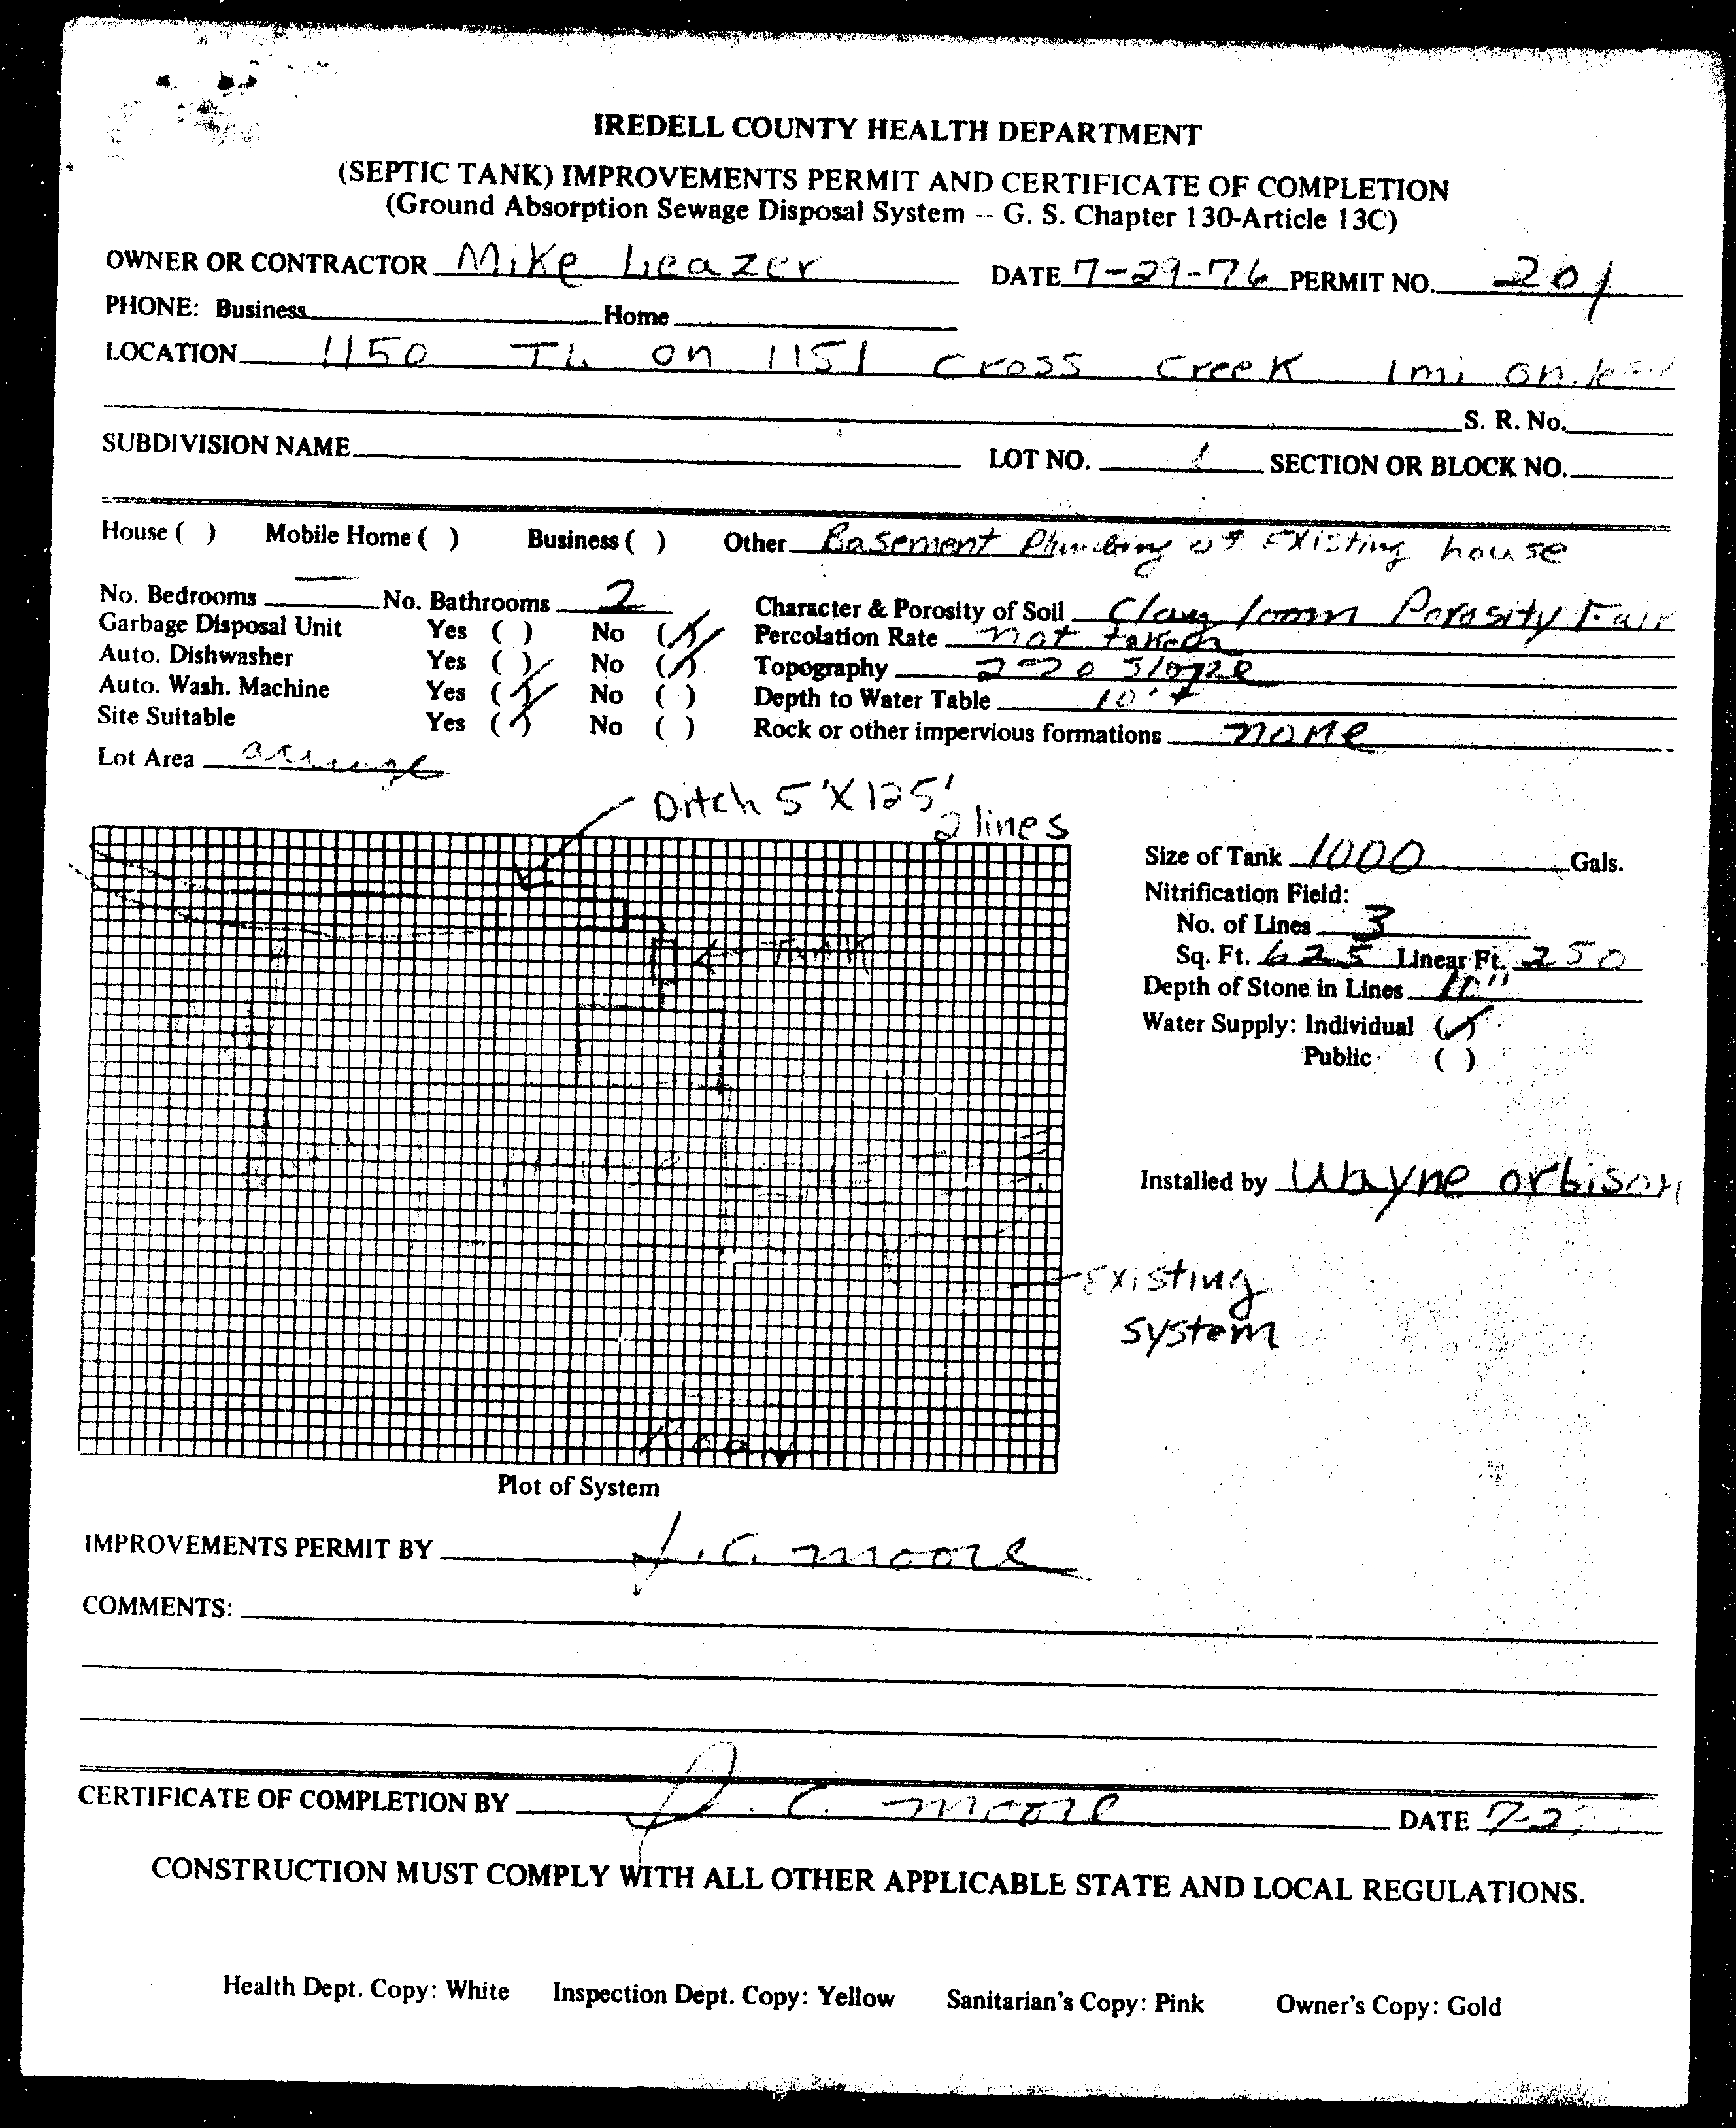 IREDELL COUNTY HEALTH DEPARTMENT
(SEPTIC TANK) IMPROVEMENTS PERMIT AND CERTIFICATE OF COMPLETION
(Ground Absorption Sewage Disposal System – G. S. Chapter 130-Article 13C)
OWNER OR CONTRACTOR Mike Leazer DATE 7-29-76 PERMIT NO. 201
PHONE: Business Home
LOCATION 1150 TL on 1151 Cross Creek 1mi on
S. R. No.
SUBDIVISION NAME LOT NO. 1 SECTION OR BLOCK NO.
House ( ) Mobile Home ( ) Business ( ) Other Basement Plumbing of Existing house
No. Bedrooms — No. Bathrooms 2 Character & Porosity of Soil Clay loam Porosity Fair
Garbage Disposal Unit Yes ( ) No (✓) Percolation Rate not taken
Auto. Dishwasher Yes ( ) No (✓) Topography slope
Auto. Wash. Machine Yes (✓) No ( ) Depth to Water Table 10' +
Site Suitable Yes (✓) No ( ) Rock or other impervious formations none
Lot Area
Ditch 5'X125'
2 lines
Size of Tank 1000 Gals.
Nitrification Field:
No. of Lines 3
Tank
Sq. Ft. 625 Linear Ft. 250
Depth of Stone in Lines 10"
Water Supply: Individual (✓)
Public ( )
Installed by Wayne orbison
Existing
System
Road
Plot of System
IMPROVEMENTS PERMIT BY J. C. Moore
COMMENTS:
CERTIFICATE OF COMPLETION BY J. C. Moore DATE 7-2
CONSTRUCTION MUST COMPLY WITH ALL OTHER APPLICABLE STATE AND LOCAL REGULATIONS.
Health Dept. Copy: White Inspection Dept. Copy: Yellow Sanitarian's Copy: Pink Owner's Copy: Gold